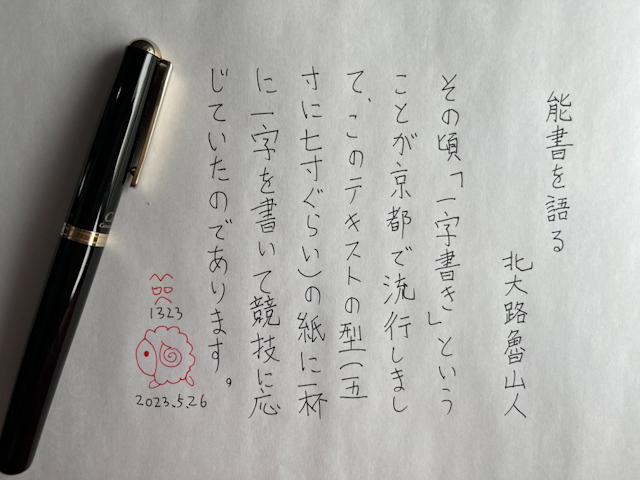 能書を語る
北大路魯山人
その頃「一字書き」という
ことが京都で流行しまし
て、このテキストの型(一五
寸に七寸ぐらい)の紙に一杯
に一字を書いて競技に応
じていたのであります。
1323
2023.5.26